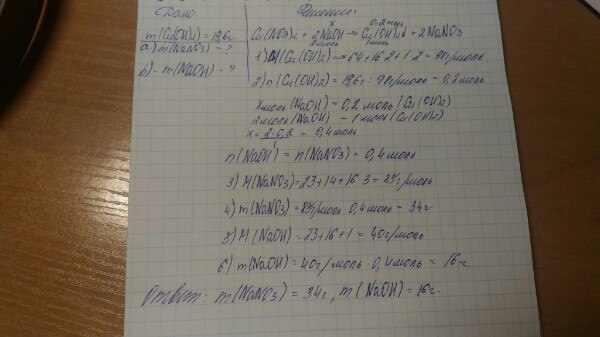 Дано:
m(Cu(OH)2) = 19,6г
а) m(NaNO3) - ?
б) - m(NaOH) - ?
Решение:
x 0,2моль
Cu(NO3)2 + 2NaOH → Cu(OH)2↓ + 2NaNO3
2моль 1моль
1) M(Cu(OH)2) = 64+16·2+1·2 = 98г/моль
2) n(Cu(OH)2) = 19,6г : 98г/моль = 0,2моль
x моль (NaOH) = 0,2 моль (Cu(OH)2)
2моль (NaOH) - 1моль (Cu(OH)2)
x = 2·0,2 = 0,4моль
1
n(NaOH) = n(NaNO3) = 0,4моль
3) M(NaNO3) = 23+14+16·3 = 85г/моль
4) m(NaNO3) = 85г/моль · 0,4моль = 34г
5) M(NaOH) = 23+16+1 = 40г/моль
6) m(NaOH) = 40г/моль · 0,4моль = 16г
Ответ: m(NaNO3) = 34г, m(NaOH) = 16г.